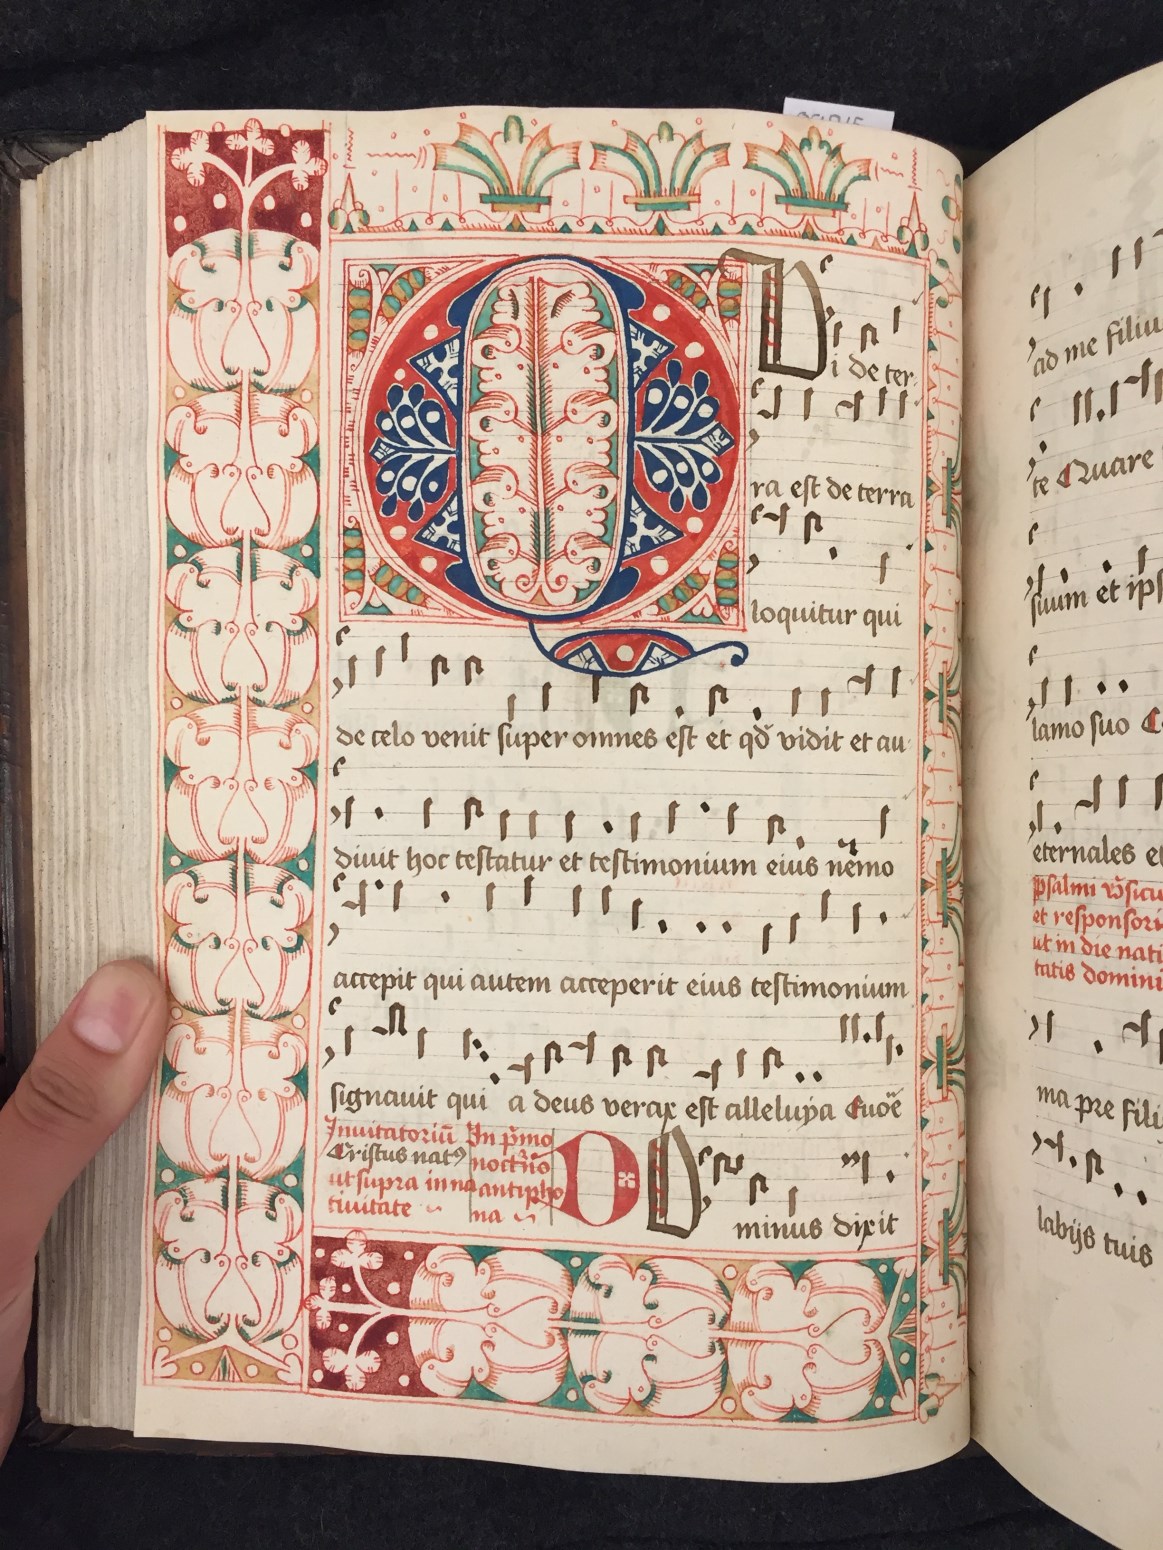 QUi de ter
ra est de terra
loquitur qui
de celo venit super omnes est et qd̄ vidit et au
diuit hoc testatur et testimonium eius nemo
accepit qui autem acceperit eius testimonium
signauit qui a deus verax est alleluya Euoē
Inuitatoriū
Cristus natꝰ
ut supra in na
tiuitate
In p̄mo
noctn̄o
antipho
na
DO
minus dixit
ad me filiu
te Quare
suum et ips
lamo suo C
eternales et
psalmi v̄sicu
et responsori
ut in die nati
tatis domini
ma pre fili
labijs tuis